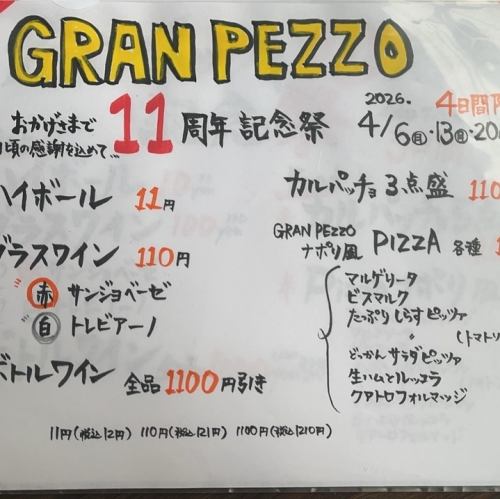 GRAN PEZZO
おかげさまで
頃の感謝を込めて...
11周年記念祭
2026.
4日間限
4/6(月)・13(月)・20
ハイボール 11円
グラスワイン 110円
赤 サンジョベーゼ
白 トレビアーノ
ボトルワイン 全品1100円引き
カルパッチョ3点盛 110
GRAN PEZZO
ナポリ風 PIZZA 各種 1
マルゲリータ
ビスマルク
たっぷりしらすピッツァ
〃 (トマトソ
どっかんサラダピッツァ
生ハムとルッコラ
クアトロフォルマッジ
11円(税込12円) 110円(税込121円) 1100円(税込1210円)